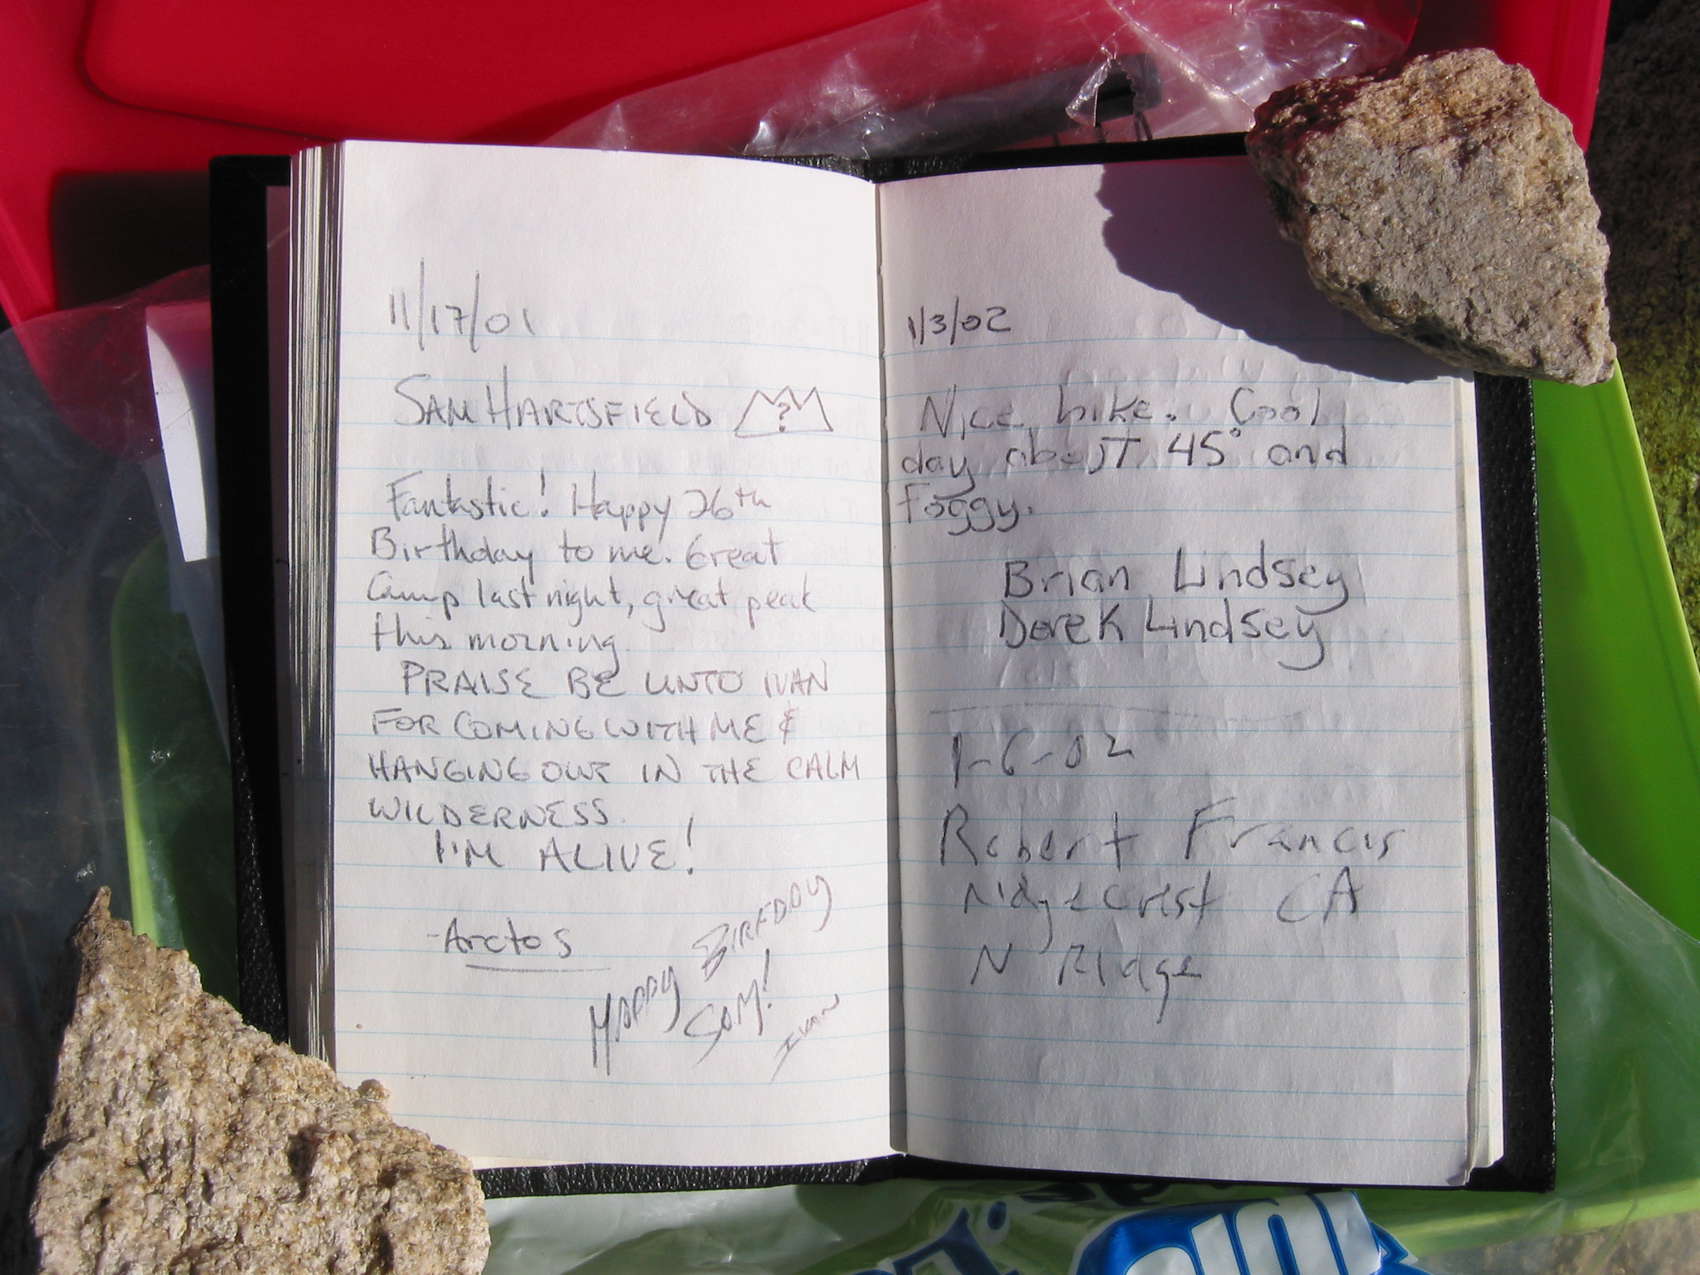 11/17/01
SAM HARTSFIELD ?
Fantastic! Happy 26th
Birthday to me. Great
Camp last night, great peak
this morning.
PRAISE BE UNTO IVAN
FOR COMING WITH ME &
HANGING OUT IN THE CALM
WILDERNESS.
I'M ALIVE!
-Arctos
HAPPY BIRFDAY
SAM!
IVAN
1/3/02
Nice hike. Cool
day about 45° and
foggy.
Brian Lindsey
Derek Lindsey
1-6-02
Robert Francis
Ridgecrest CA
N Ridge